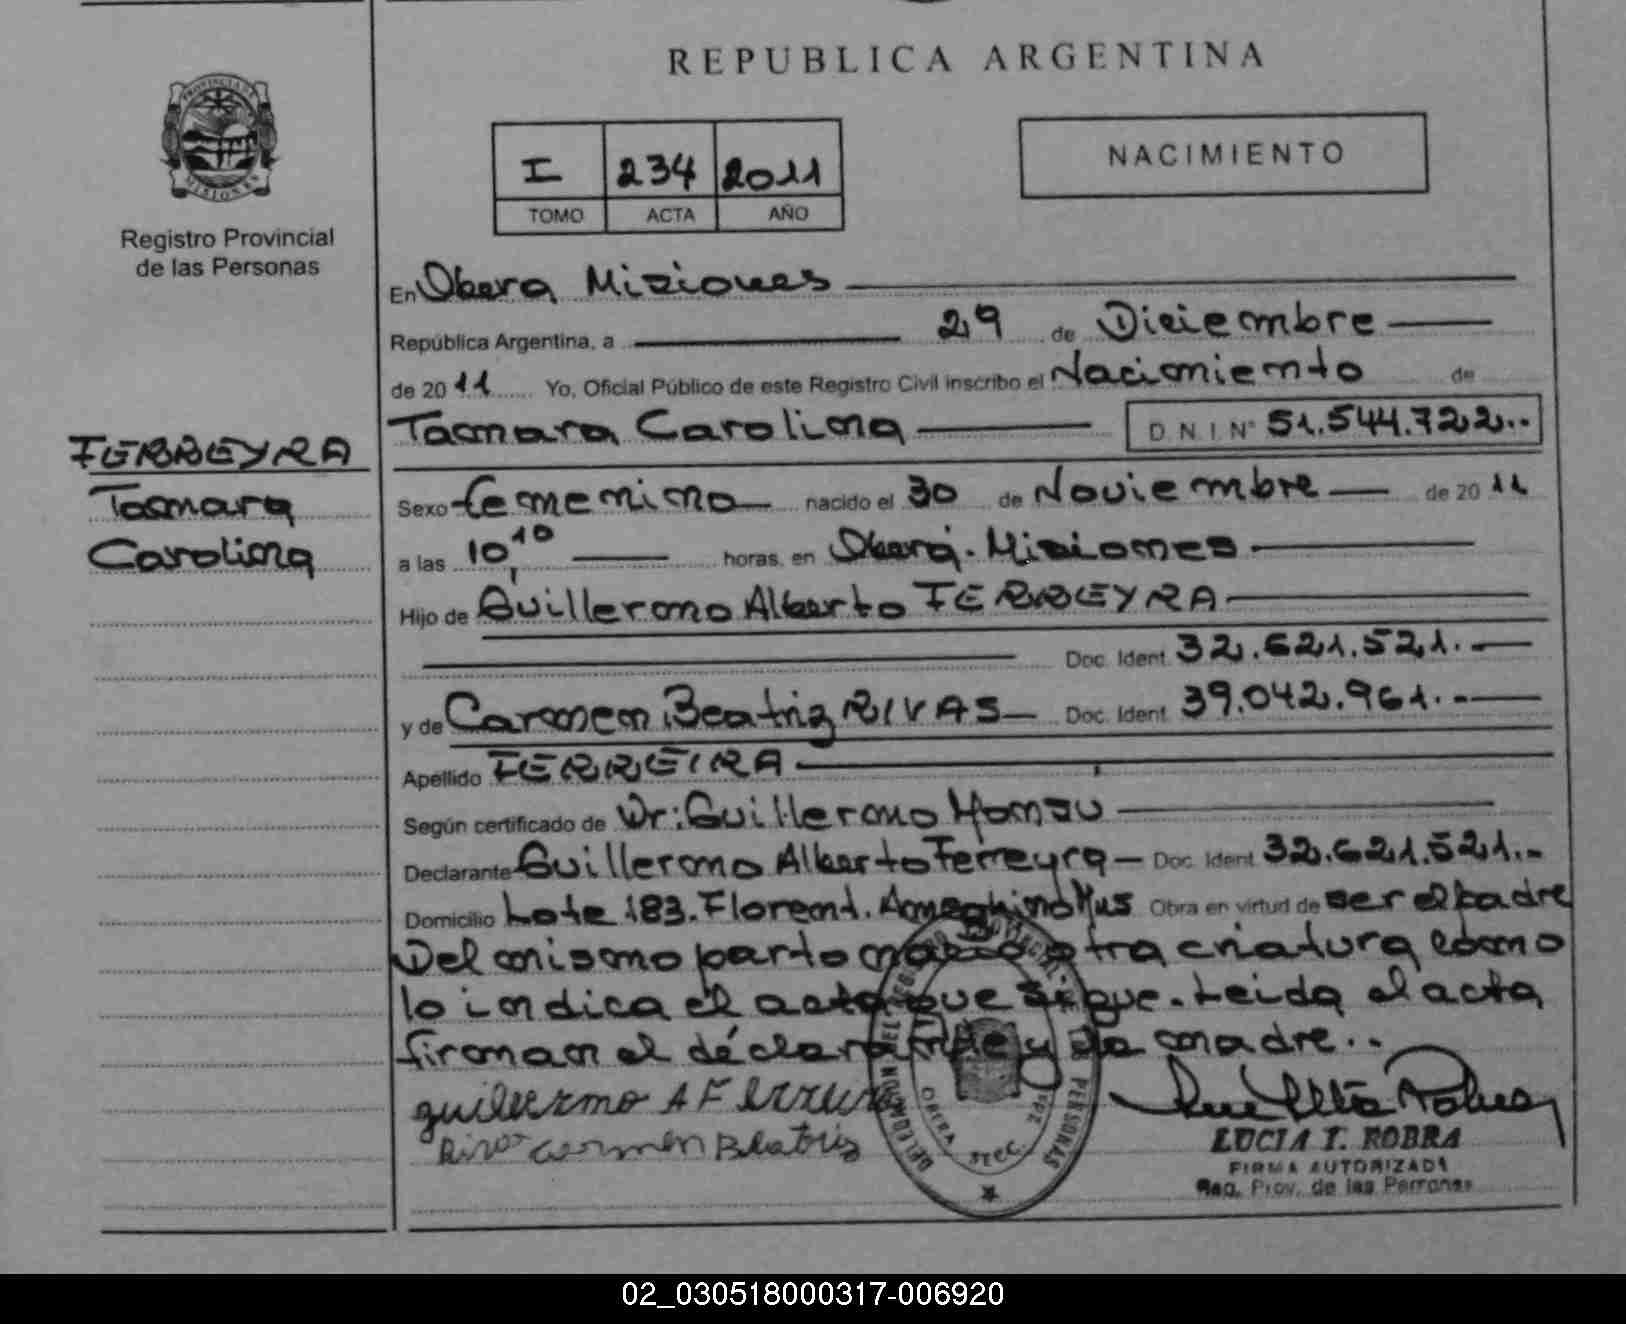 REPUBLICA ARGENTINA
PROVINCIA DE
MISIONES
Registro Provincial
de las Personas
I 234 2011
TOMO ACTA AÑO
NACIMIENTO
En Obera Misiones
República Argentina, a 29 de Diciembre
de 2011 Yo, Oficial Público de este Registro Civil inscribo el Nacimiento de
Tamara Carolina D.N.I. N° 51.544.722..
FERREYRA
Tamara
Carolina
Sexo femenino nacido el 30 de Noviembre de 2011
a las 10,10 horas, en Oberá. Misiones
Hijo de Guillermo Alberto FERREYRA
Doc. Ident. 32.621.521.
y de Carmen Beatriz RIVAS Doc. Ident. 39.042.961.
Apellido FERREIRA
Según certificado de Dr: Guillermo
Declarante Guillermo Alberto Ferreyra Doc. Ident. 32.621.521.
Domicilio Lote 183. Florent. Ameghino Mns Obra en virtud de ser el padre
Del mismo parto nació otra criatura como
lo indica el acta que sigue. Leida el acta
firman el declarante y la madre..
guillermo A F
Carmen Beatriz
LUCIA T. ROBRA
FIRMA AUTORIZADA
Reg. Prov. de las Personas
PERSONAS
02_030518000317-006920